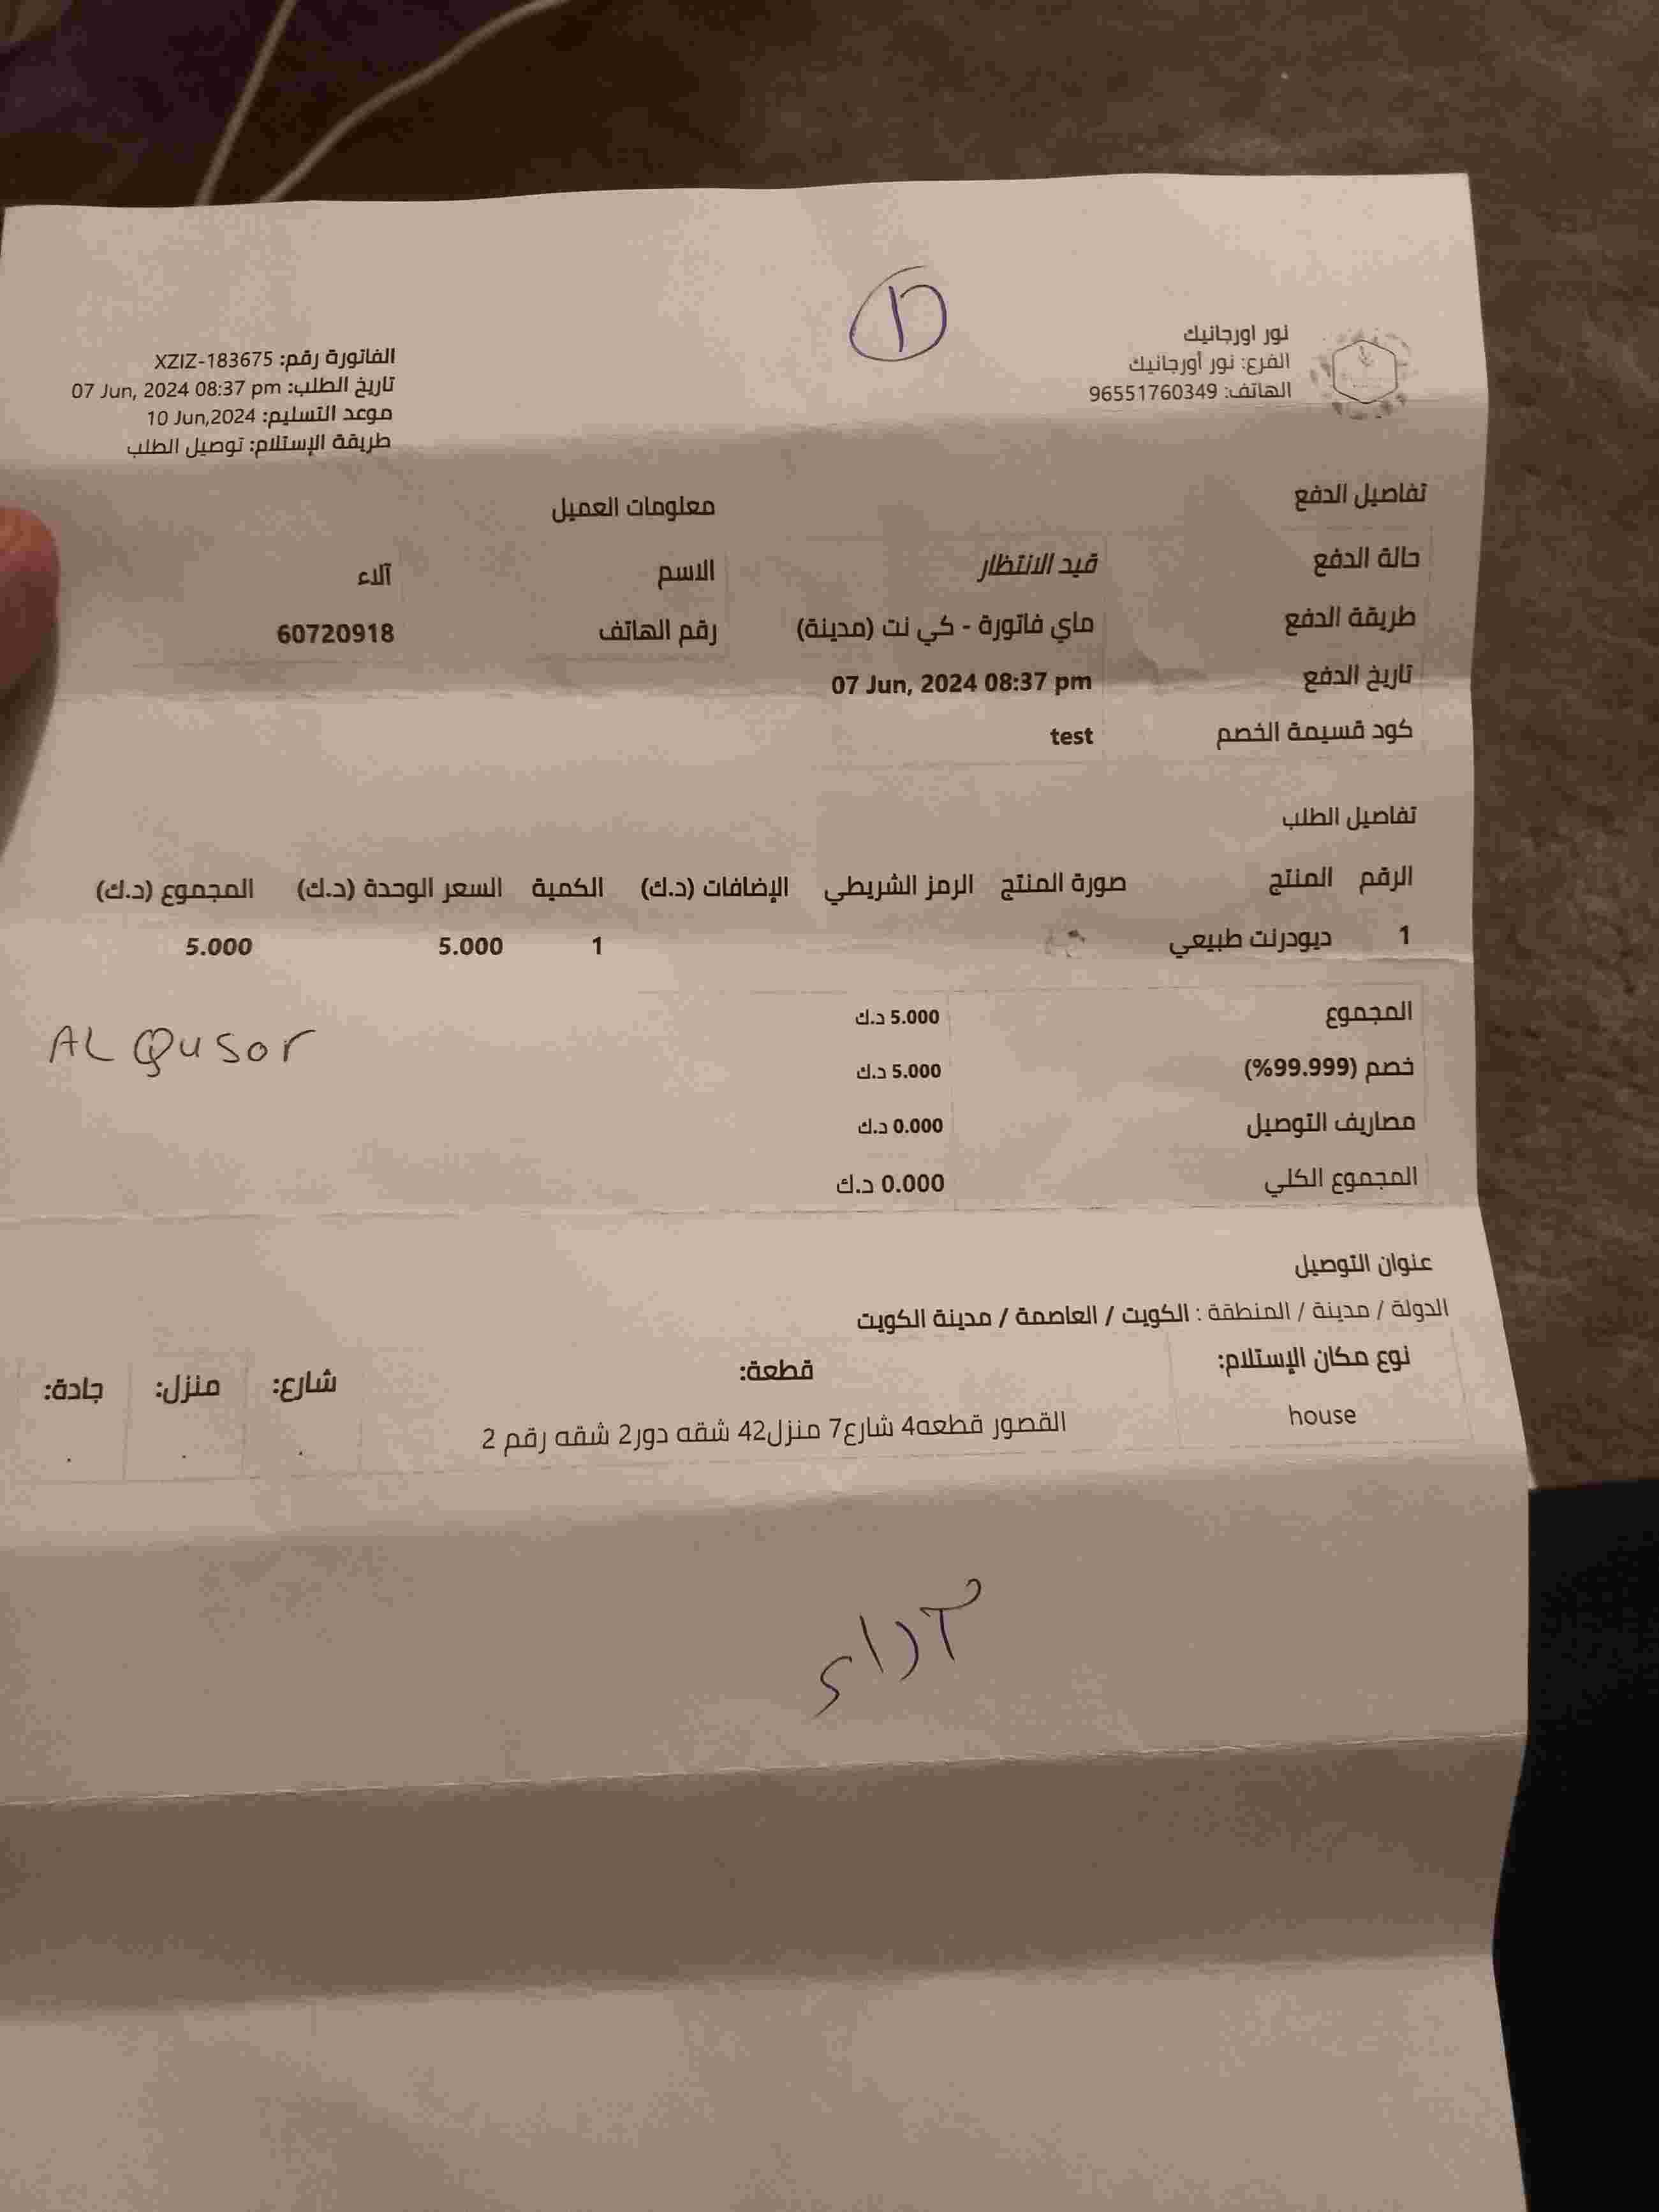 نور اورجانيك
الفرع: نور أورجانيك
الهاتف: 96551760349
الفاتورة رقم: XZIZ-183675
تاريخ الطلب: 07 Jun, 2024 08:37 pm
موعد التسليم: 10 Jun,2024
طريقة الإستلام: توصيل الطلب
تفاصيل الدفع
حالة الدفع قيد الانتظار
طريقة الدفع ماي فاتورة - كي نت (مدينة)
تاريخ الدفع 07 Jun, 2024 08:37 pm
كود قسيمة الخصم test
معلومات العميل
الاسم آلاء
رقم الهاتف 60720918
تفاصيل الطلب
الرقم المنتج صورة المنتج الرمز الشريطي الإضافات (د.ك) الكمية السعر الوحدة (د.ك) المجموع (د.ك)
1 ديودرنت طبيعي 1 5.000 5.000
المجموع 5.000 د.ك
خصم (99.999%) 5.000 د.ك
مصاريف التوصيل 0.000 د.ك
المجموع الكلي 0.000 د.ك
AL Qusor
عنوان التوصيل
الدولة / مدينة / المنطقة : الكويت / العاصمة / مدينة الكويت
نوع مكان الإستلام: قطعة: شارع: منزل: جادة:
house القصور قطعه4 شارع7 منزل42 شقه دور2 شقه رقم 2 . . .